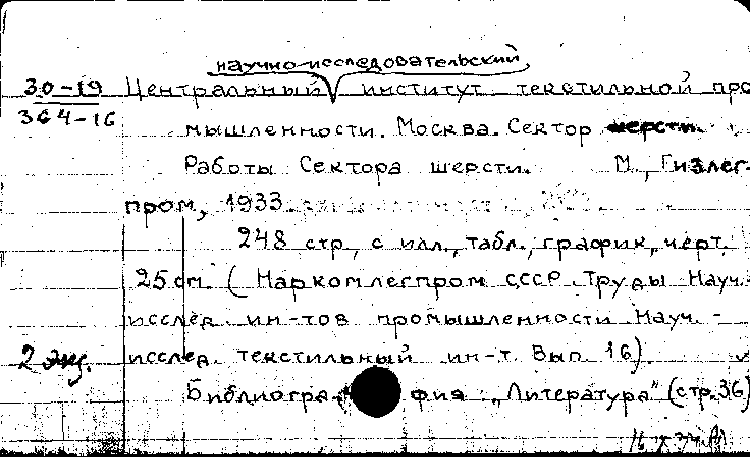 научно-исследовательский
30-19 Центральный институт текстильной про
364-16 мышленности. Москва. Сектор шерсти
Работы Сектора шерсти. М., Гизлег-
пром, 1933.
248 стр, с илл., табл., график., черт.
25 см. (Наркомлегпром СССР. Труды Науч.-
исслед. ин-тов промышленности Науч.-
2 экз. исслед. текстильный ин-т. Вып. 16)
Библиография: „Литература" (стр.36)